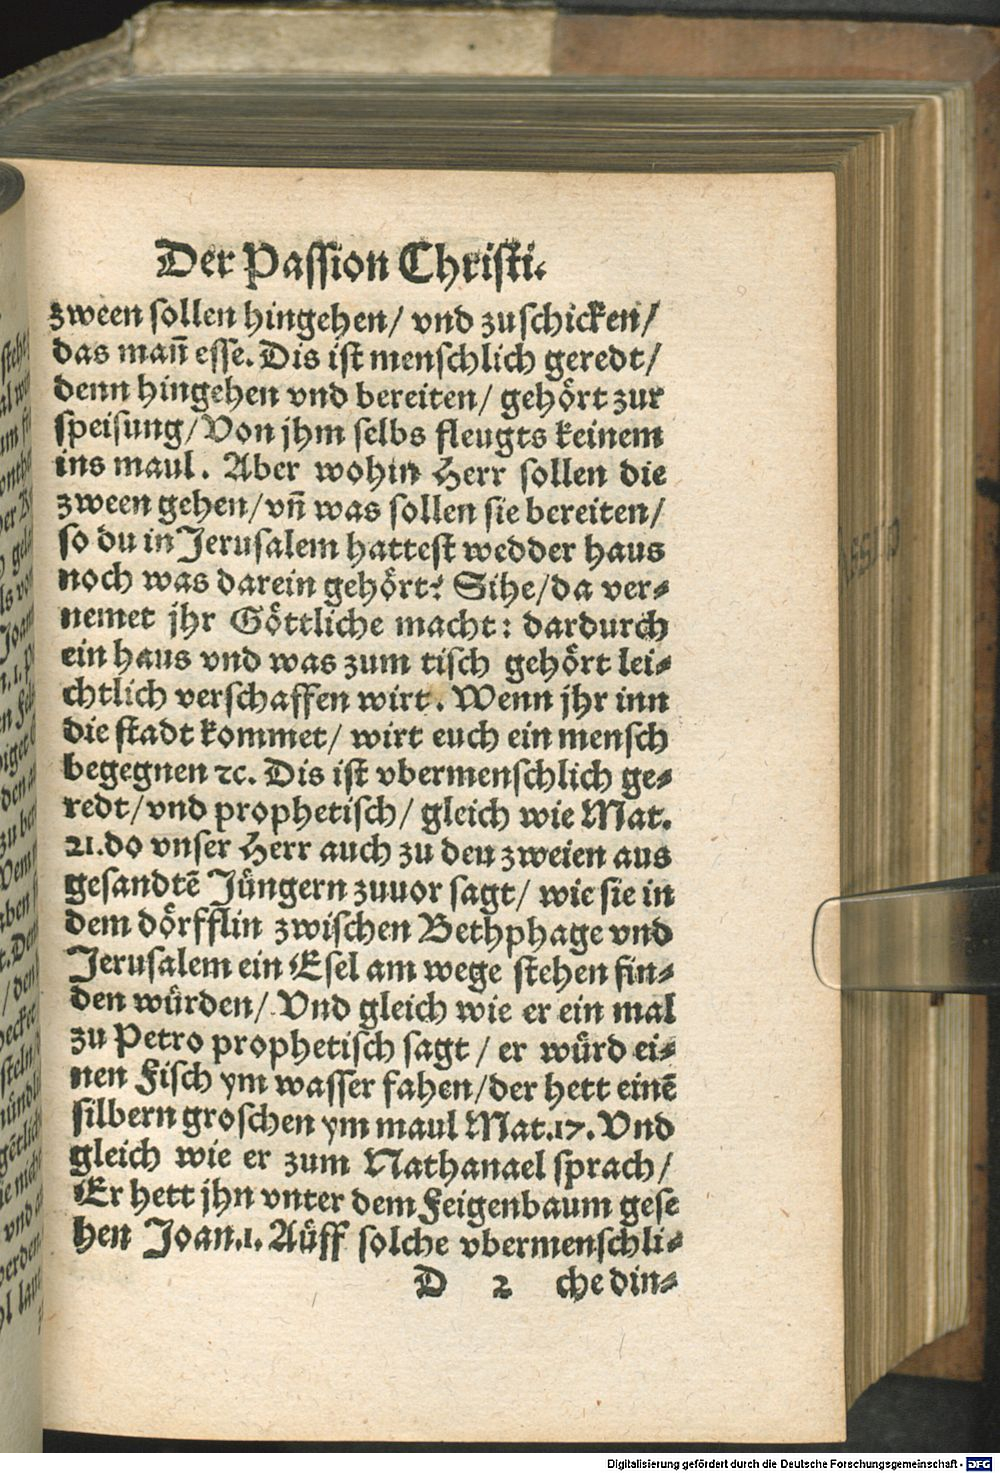 Der Passion Christi.
zween sollen hingehen/ vnd zuschicken/
das mañ esse. Dis ist menschlich geredt/
denn hingehen vnd bereiten/ gehört zur
speisung/ Von jhm selbs fleugts keinem
ins maul. Aber wohin Herr sollen die
zween gehen/ vñ was sollen sie bereiten/
so du in Jerusalem hattest wedder haus
noch was darein gehört? Sihe/ da ver-
nemet jhr Göttliche macht: dardurch
ein haus vnd was zum tisch gehört lei-
chtlich verschaffen wirt. Wenn jhr inn
die stadt kommet/ wirt euch ein mensch
begegnen ꝛc. Dis ist vbermenschlich ge-
redt/ vnd prophetisch/ gleich wie Mat.
21. do vnser Herr auch zu den zweien aus
gesandtē Jüngern zuuor sagt/ wie sie in
dem dörfflin zwischen Bethphage vnd
Jerusalem ein Esel am wege stehen fin-
den würden/ Vnd gleich wie er ein mal
zu Petro prophetisch sagt/ er würd ei-
nen Fisch ym wasser fahen/ der hett einē
silbern groschen ym maul Mat. 17. Vnd
gleich wie er zum Nathanael sprach/
Er hett jhn vnter dem Feigenbaum gese
hen Joan. 1. Aüff solche vbermenschli-
D 2 che din-
Digitalisierung gefördert durch die Deutsche Forschungsgemeinschaft - DFG